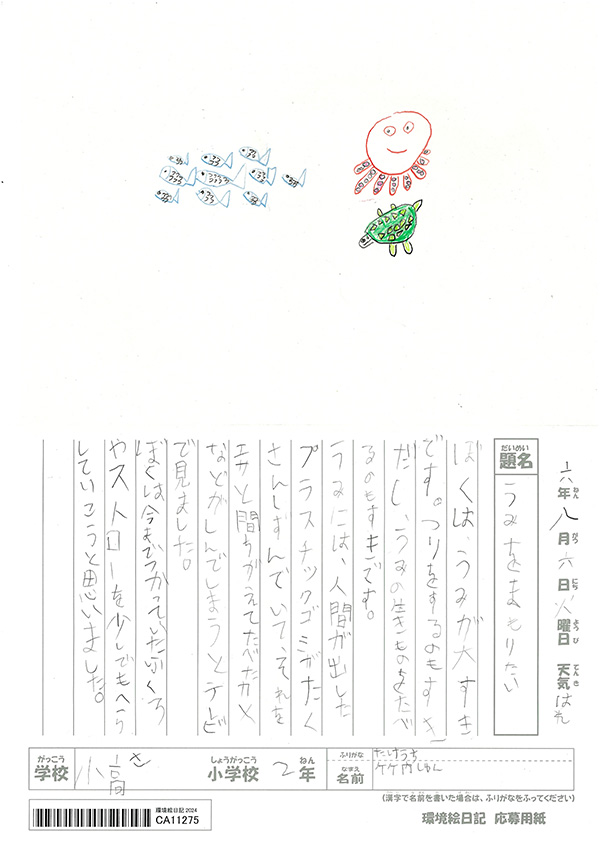 六年八月六日火曜日 天気はれ
ねん がつ にち ようび てんき
だいめい
題名
うみをまもりたい
ぼくは、うみが大すき
です。つりをするのもすき
だし、うみの生きものをたべ
るのもすきです。
うみには、人間が出した
プラスチックゴミがたく
さんしずんでいて、それを
エサと間ちがえてたべたカメ
などがしんでしまうとテレビ
で見ました。
ぼくは今までつかっていたふくろ
やストローを少しでもへら
していこうと思いました。
がっこう
学校
小高
しょうがっこう
小学校
2年
ねん
ふりがな
たけうち
なまえ
名前
竹内しゅん
(漢字で名前を書いた場合は、ふりがなをふってください)
環境絵日記2024
CA11275
環境絵日記 応募用紙